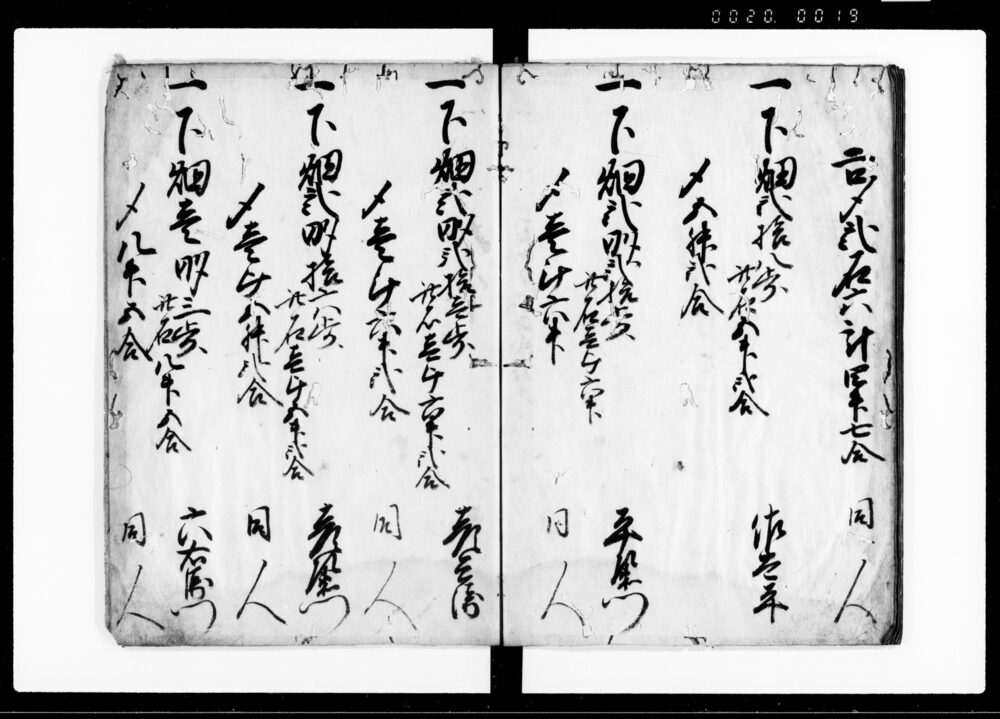 0020.0019
〆弐石六斗四升七合 同人
一下畑弐拾八歩 佐五平
此石五升弐合
〆五升弐合
一下畑弐畝弐拾歩 平左衛門
此石壱斗六升
〆壱斗六升 同人
一下畑弐畝弐拾壱歩 彦兵衛
此石壱斗六升弐合
〆壱斗六升弐合 同人
一下畑弐畝拾六歩 彦左衛門
此石壱斗五升弐合
〆壱斗五升弐合 同人
一下畑壱畝三歩 六右衛門
此石六升五合
〆六升五合 同人